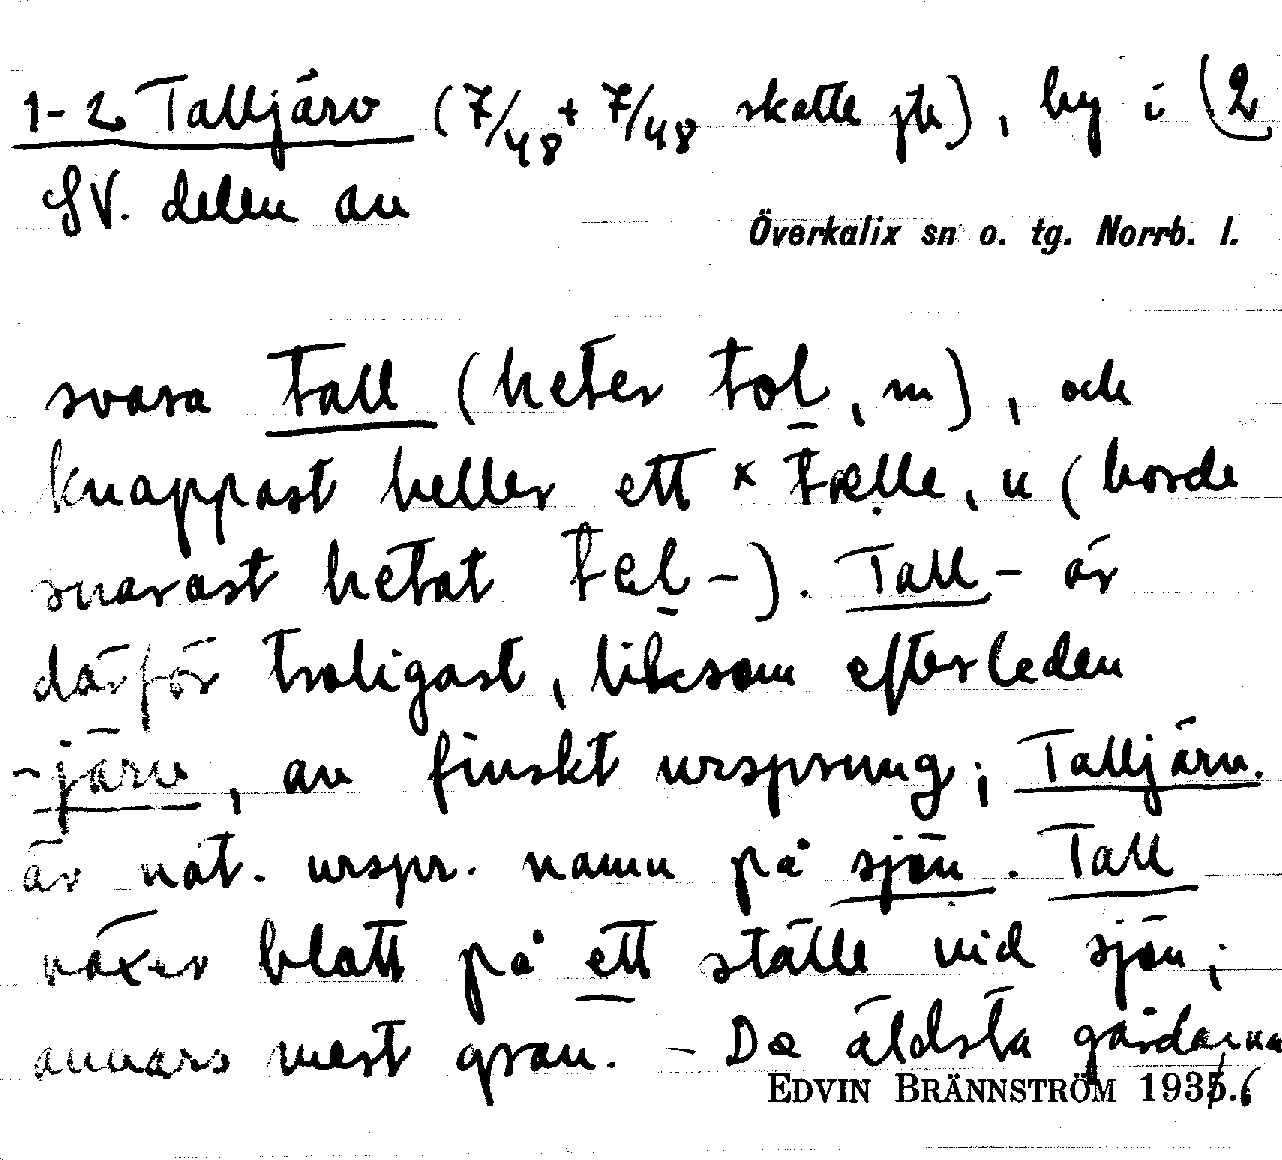 1-2 Talljärv (7/48 + 7/48 skatte jtl), by i (2
SV. delen av
Överkalix sn o. tg. Norrb. l.
svara tall (heter tol, m), och
knappast heller ett × tælle, n (borde
snarast hetat tel-). Tall- är
därför troligast, liksom efterleden
-järv, av finskt ursprung; Talljärv.
är nat. urspr. namn på sjön. Tall
växer blott på ett ställe vid sjön;
annars mest gran. - De äldsta gårdarna
EDVIN BRÄNNSTRÖM 1935.6